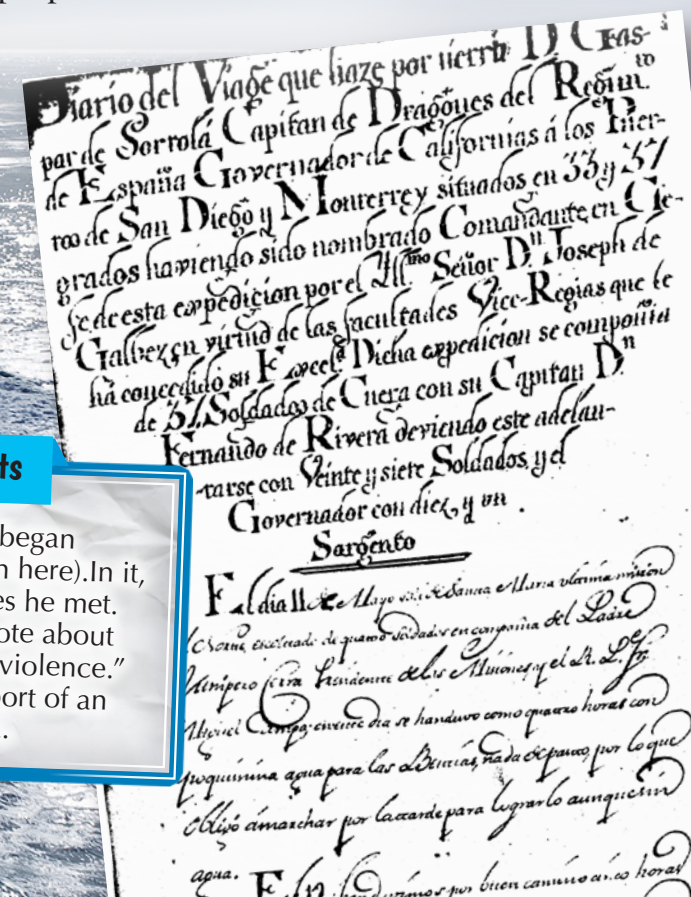 Diario del Viage que haze por tierra D. Gas-
par de Porrolá Capitan de Dragones del Regim.to
de España Governador de Californias á los Puer-
tos de San Diego y Monterrey situados en 33 y 37
grados haviendo sido nombrado Comandante en Ge-
fe de esta expedicion por el Ill.mo Señor D.n Joseph de
Galbez en virtud de las facultades Vice-Regias que le
ha concedido su Excel.a Dicha expedicion se componia
de 37 Soldados de Cuera con su Capitan D.n
Fernando de Rivera deviendo este adelan-
-tarse con Veinte y siete Soldados, y el
Governador con diez, y un
Sargento
El dia 11 de Mayo sali de Santa Maria ultima mision
escoltado de quatro soldados en compañia del Padre
Junipero Serra Presidente de las Misiones y el P. Fr.
Miguel Campa en este dia se handuvo como quatro horas con
poquinina agua para las Bestias, nada de pasto, por lo que
obligó á marchar por la tarde para lograrlo aunque sin
agua.
El 12 handuvimos por buen camino cinco horas
ts
began
n here).In it,
es he met.
ote about
violence.”
port of an
.